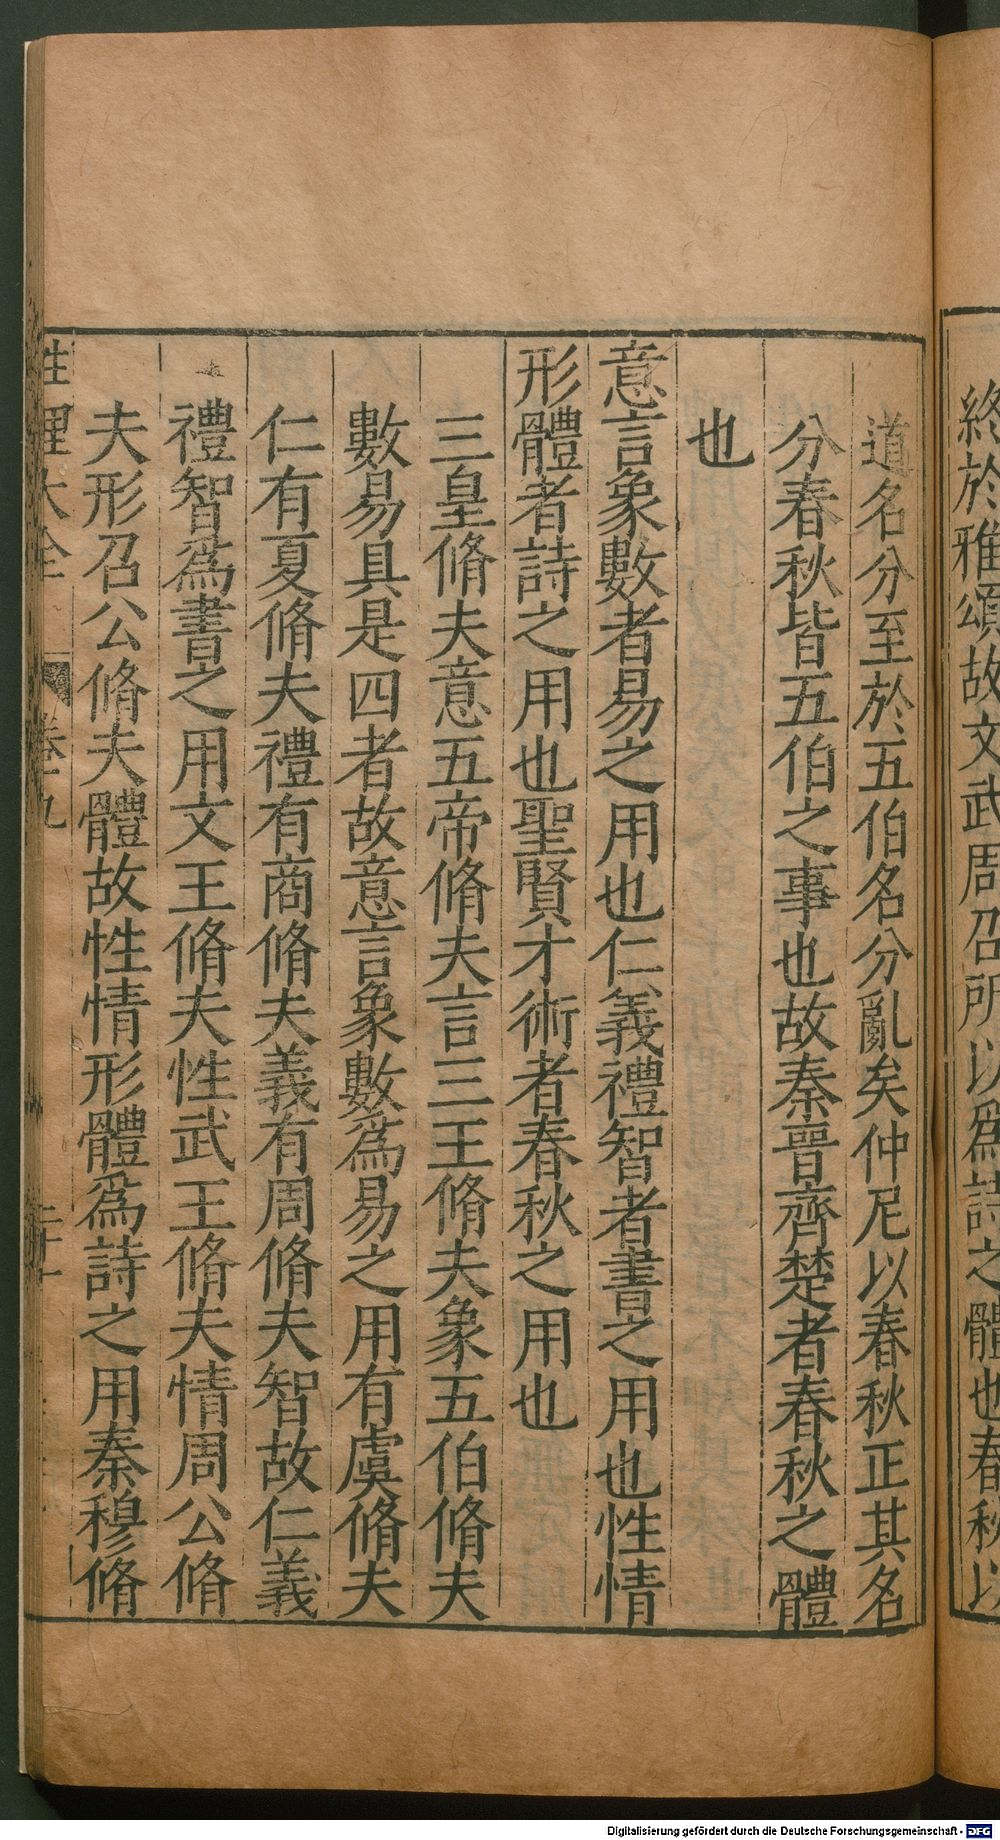 終於雅頌故文武周召所以爲詩之體也春秋以
道名分至於五伯名分亂矣仲尼以春秋正其名
分春秋皆五伯之事也故秦晉齊楚者春秋之體
也
意言象數者易之用也仁義禮智者書之用也性情
形體者詩之用也聖賢才術者春秋之用也
三皇脩夫意五帝脩夫言三王脩夫象五伯脩夫
數易具是四者故意言象數爲易之用有虞脩夫
仁有夏脩夫禮有商脩夫義有周脩夫智故仁義
禮智爲書之用文王脩夫性武王脩夫情周公脩
夫形召公脩夫體故性情形體爲詩之用秦穆脩
性理大全 卷九
Digitalisierung gefördert durch die Deutsche Forschungsgemeinschaft - DFG